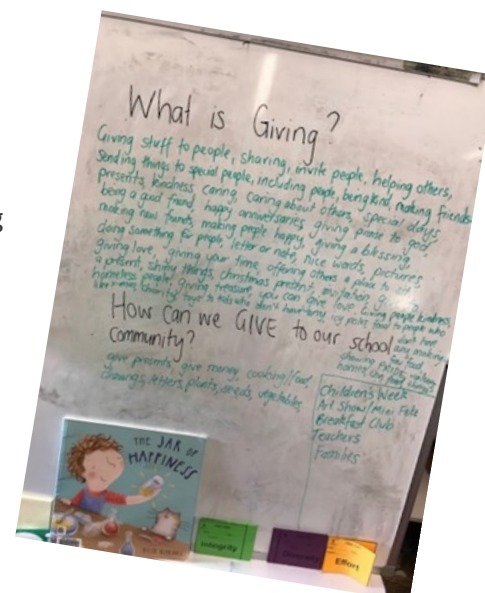 g
What is Giving?
Giving stuff to people, sharing, invite people, helping others,
Sending things to special people, including people, being kind, making friends
presents, kindness, caring, caring about others, special days,
being a good friend, happy anniversaries, giving praise to god,
making new friends, making people happy, giving a blessing,
doing something for people, letter or note, nice words, pictures,
giving love, giving your time, offering others a place to
a present, shiny things, christmas present, invitation,
homeless people, giving treasure, you can give love, giving people kindness
How can we GIVE to our school
community?
give presents, give money, cooking/food,
drawings, letters, plants, seeds, vegetables
Children's Week
Art Show/Mini Fete
Breakfast Club
Teachers
Families
THE JAR OF
HAPPINESS
Integrity
Diversity
Effort